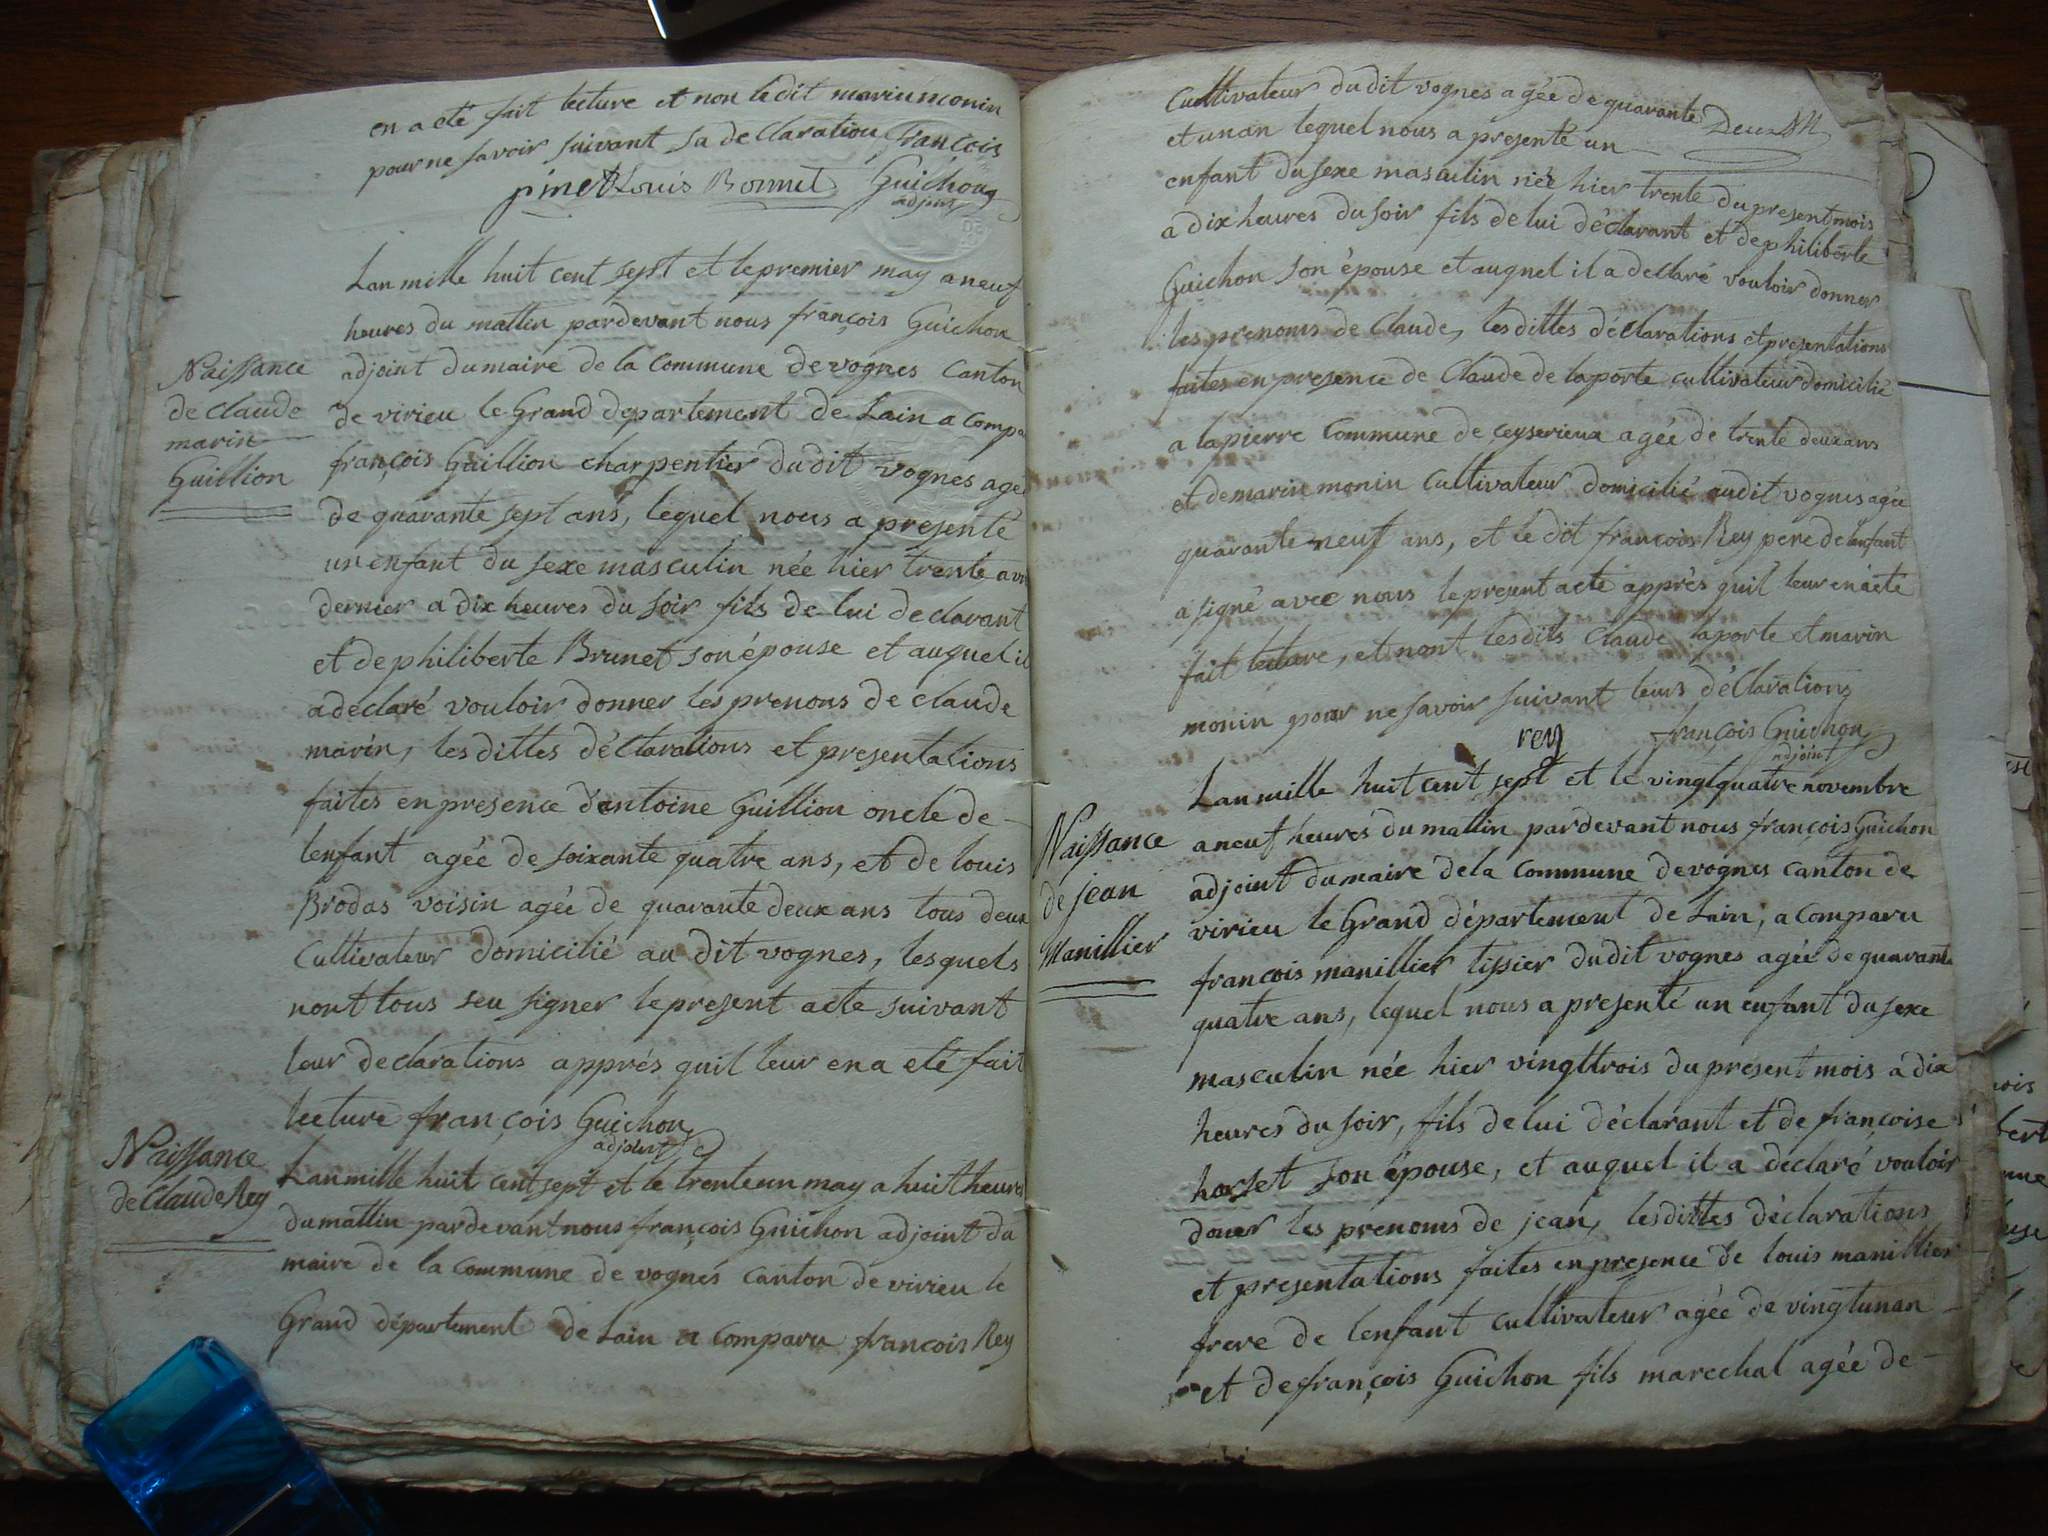 en a eté fait lecture et non le dit marin monin
pour ne savoir suivant sa declaration, françois
pinet Louis Bonnet Guichon
adjoint
Lan mille huit cent sept et le premier may a neuf
heures du mattin pardevant nous françois Guichon
Naissance
de Claude
marin
Guillion
adjoint du maire de la Commune de vognes Canton
de virieu le Grand departement de Lain a compa
françois Guillion charpentier du dit vognes agé
de quarante sept ans, lequel nous a presenté
un enfant du sexe masculin née hier trente avr
dernier a dix heures du soir fils de lui declarant
et de philiberte Brunet son épouse et auquel il
a declaré vouloir donner les prenons de claude
marin, les dittes déclarations et presentations
faites en presence d'antoine Guillion oncle de
lenfant agée de soixante quatre ans, et de louis
Brodas voisin agée de quarante deux ans tous deux
Cultivateur domicilié au dit vognes, lesquels
nont tous seu signer le present acte suivant
leur declarations apprés quil leur en a eté fait
lecture françois Guichon
adjoint
Naissance
de Claude Rey
Lan mille huit cent sept et le trente un may a huit heures
du mattin pardevant nous françois Guichon adjoint du
maire de la commune de vognés canton de virieu le
Grand département de Lain a comparu françois Rey
Cultivateur du dit vognes agée de quarante
et un an lequel nous a presenté un
enfant du sexe masculin née hier trente du present mois
a dix heures du soir fils de lui déclarant et de philiberte
Guichon son épouse et auquel il a declaré vouloir donner
les prenoms de Claude, les dittes déclarations et presentations
faites en presence de Claude de laporte cultivateur domicilié
a lapierre Commune de ceyserieux agée de trente deux ans
et de marin monin Cultivateur domicilié audit vognes agée
quarante neuf ans, et le dit françois Rey pere de lenfant
a signé avec nous le present acte apprés quil leur en a eté
fait lecture, et nont lesdits Claude laporte et marin
monin pour ne savoir suivant leurs déclarations
rey françois Guichon
adjoint
Naissance
de jean
Manillier
Lan mille huit cent sept et le vingt quatre novembre
a neuf heures du mattin pardevant nous françois Guichon
adjoint du maire de la commune de vognes canton de
virieu le Grand département de Lain, a comparu
françois manillier tissier du dit vognes agée de quarante
quatre ans, lequel nous a presenté un enfant du sexe
masculin née hier vingt trois du present mois a dix
heures du soir, fils de lui déclarant et de françoise
son épouse, et auquel il a declaré vouloir
doner les prenoms de jean, les dittes déclarations
et presentations faites en presence de louis manillier
frere de lenfant cultivateur agée de vingt un an
et de françois Guichon fils marechal agée de